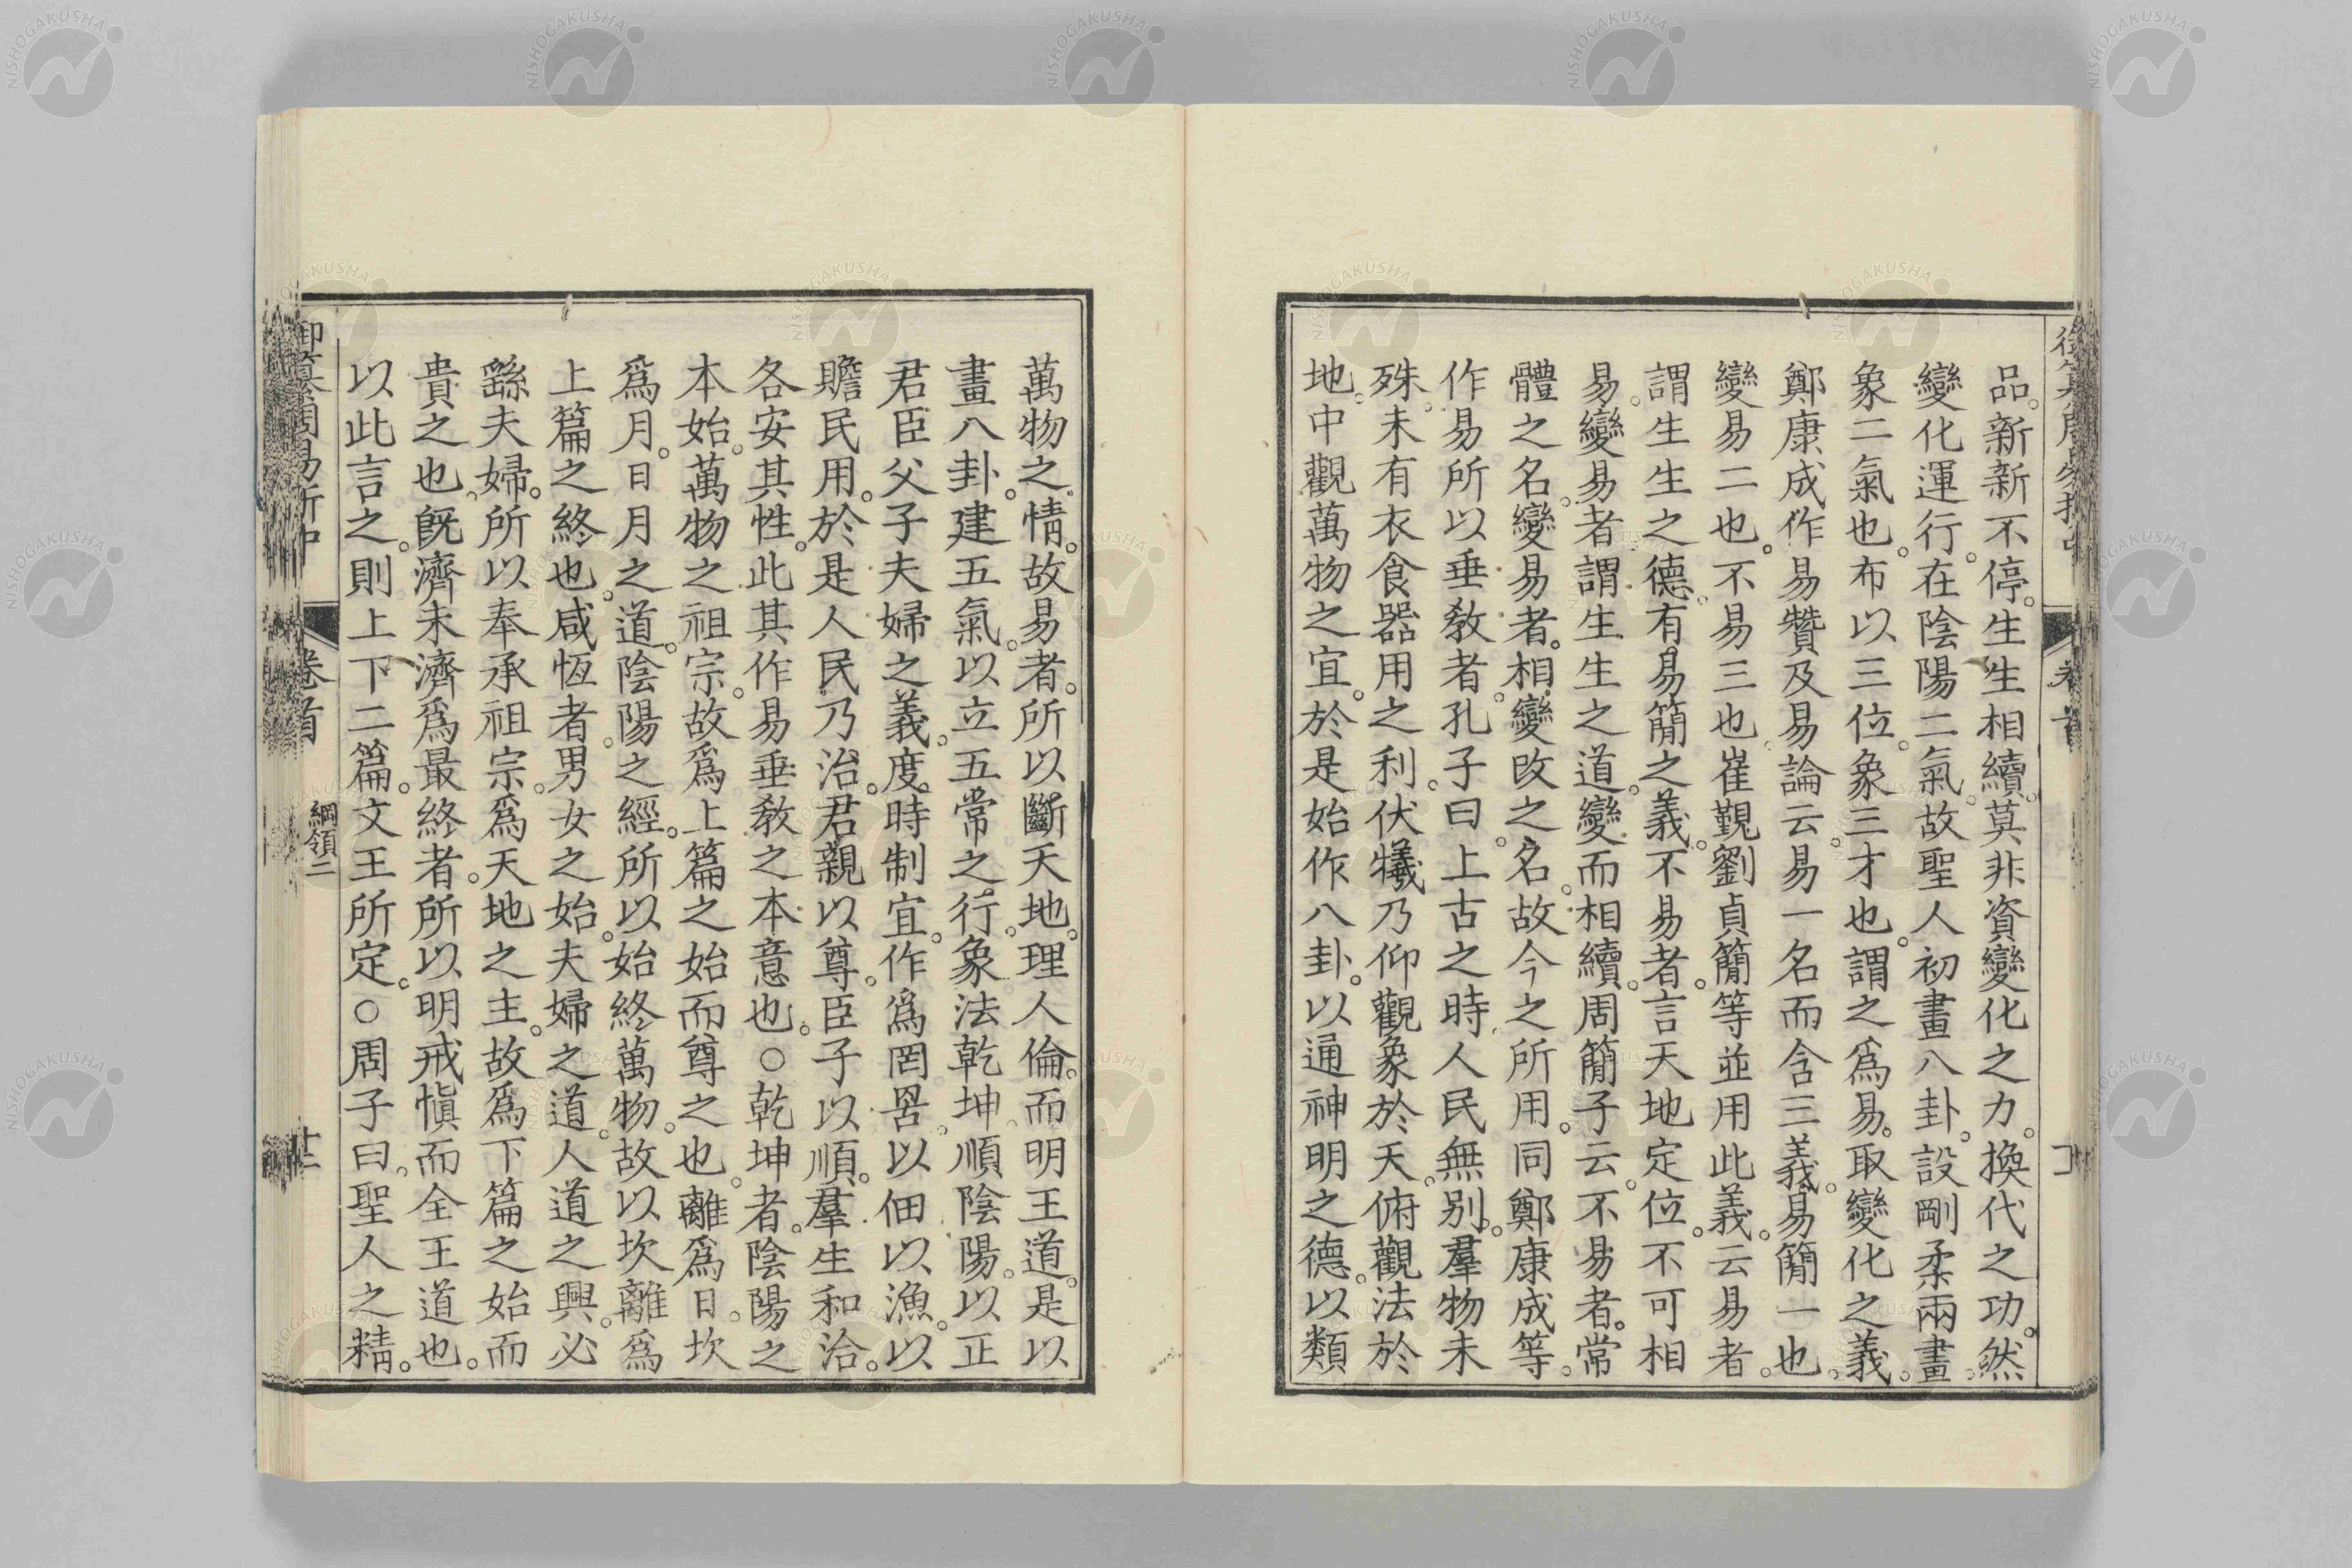 品。新新不停。生生相續。莫非資變化之力。換代之功。然
變化運行。在陰陽二氣。故聖人初畫八卦。設剛柔兩畫。
象二氣也。布以三位。象三才也。謂之爲易。取變化之義。
鄭康成作易贊及易論云。易一名而含三義。易簡一也。
變易二也。不易三也。崔覲劉貞簡等並用此義。云易者。
謂生生之德。有易簡之義。不易者。言天地定位。不可相
易。變易者。謂生生之道。變而相續。周簡子云。不易者。常
體之名。變易者。相變改之名。故今之所用。同鄭康成等。
作易所以垂敎者。孔子曰。上古之時。人民無别。羣物未
殊。未有衣食器用之利。伏犧乃仰觀象於天。俯觀法於
地。中觀萬物之宜。於是始作八卦。以通神明之德。以類
萬物之情。故易者。所以斷天地。理人倫。而明王道。是以
畫八卦。建五氣。以立五常之行。象法乾坤。順陰陽。以正
君臣父子夫婦之義。度時制宜。作爲罔罟。以佃以漁。以
贍民用。於是人民乃治。君親以尊。臣子以順。羣生和洽。
各安其性。此其作易垂敎之本意也。○乾坤者。陰陽之
本始。萬物之祖宗。故爲上篇之始而尊之也。離爲日。坎
爲月。日月之道。陰陽之經。所以始終萬物。故以坎離爲
上篇之終也。咸恆者。男女之始。夫婦之道。人道之興。必
繇夫婦。所以奉承祖宗。爲天地之主。故爲下篇之始而
貴之也。旣濟未濟爲最終者。所以明戒愼而全王道也。
以此言之。則上下二篇。文王所定。○周子曰。聖人之精。
御纂周易折中
卷首
綱領二
廿二
NISHOGAKUSHA